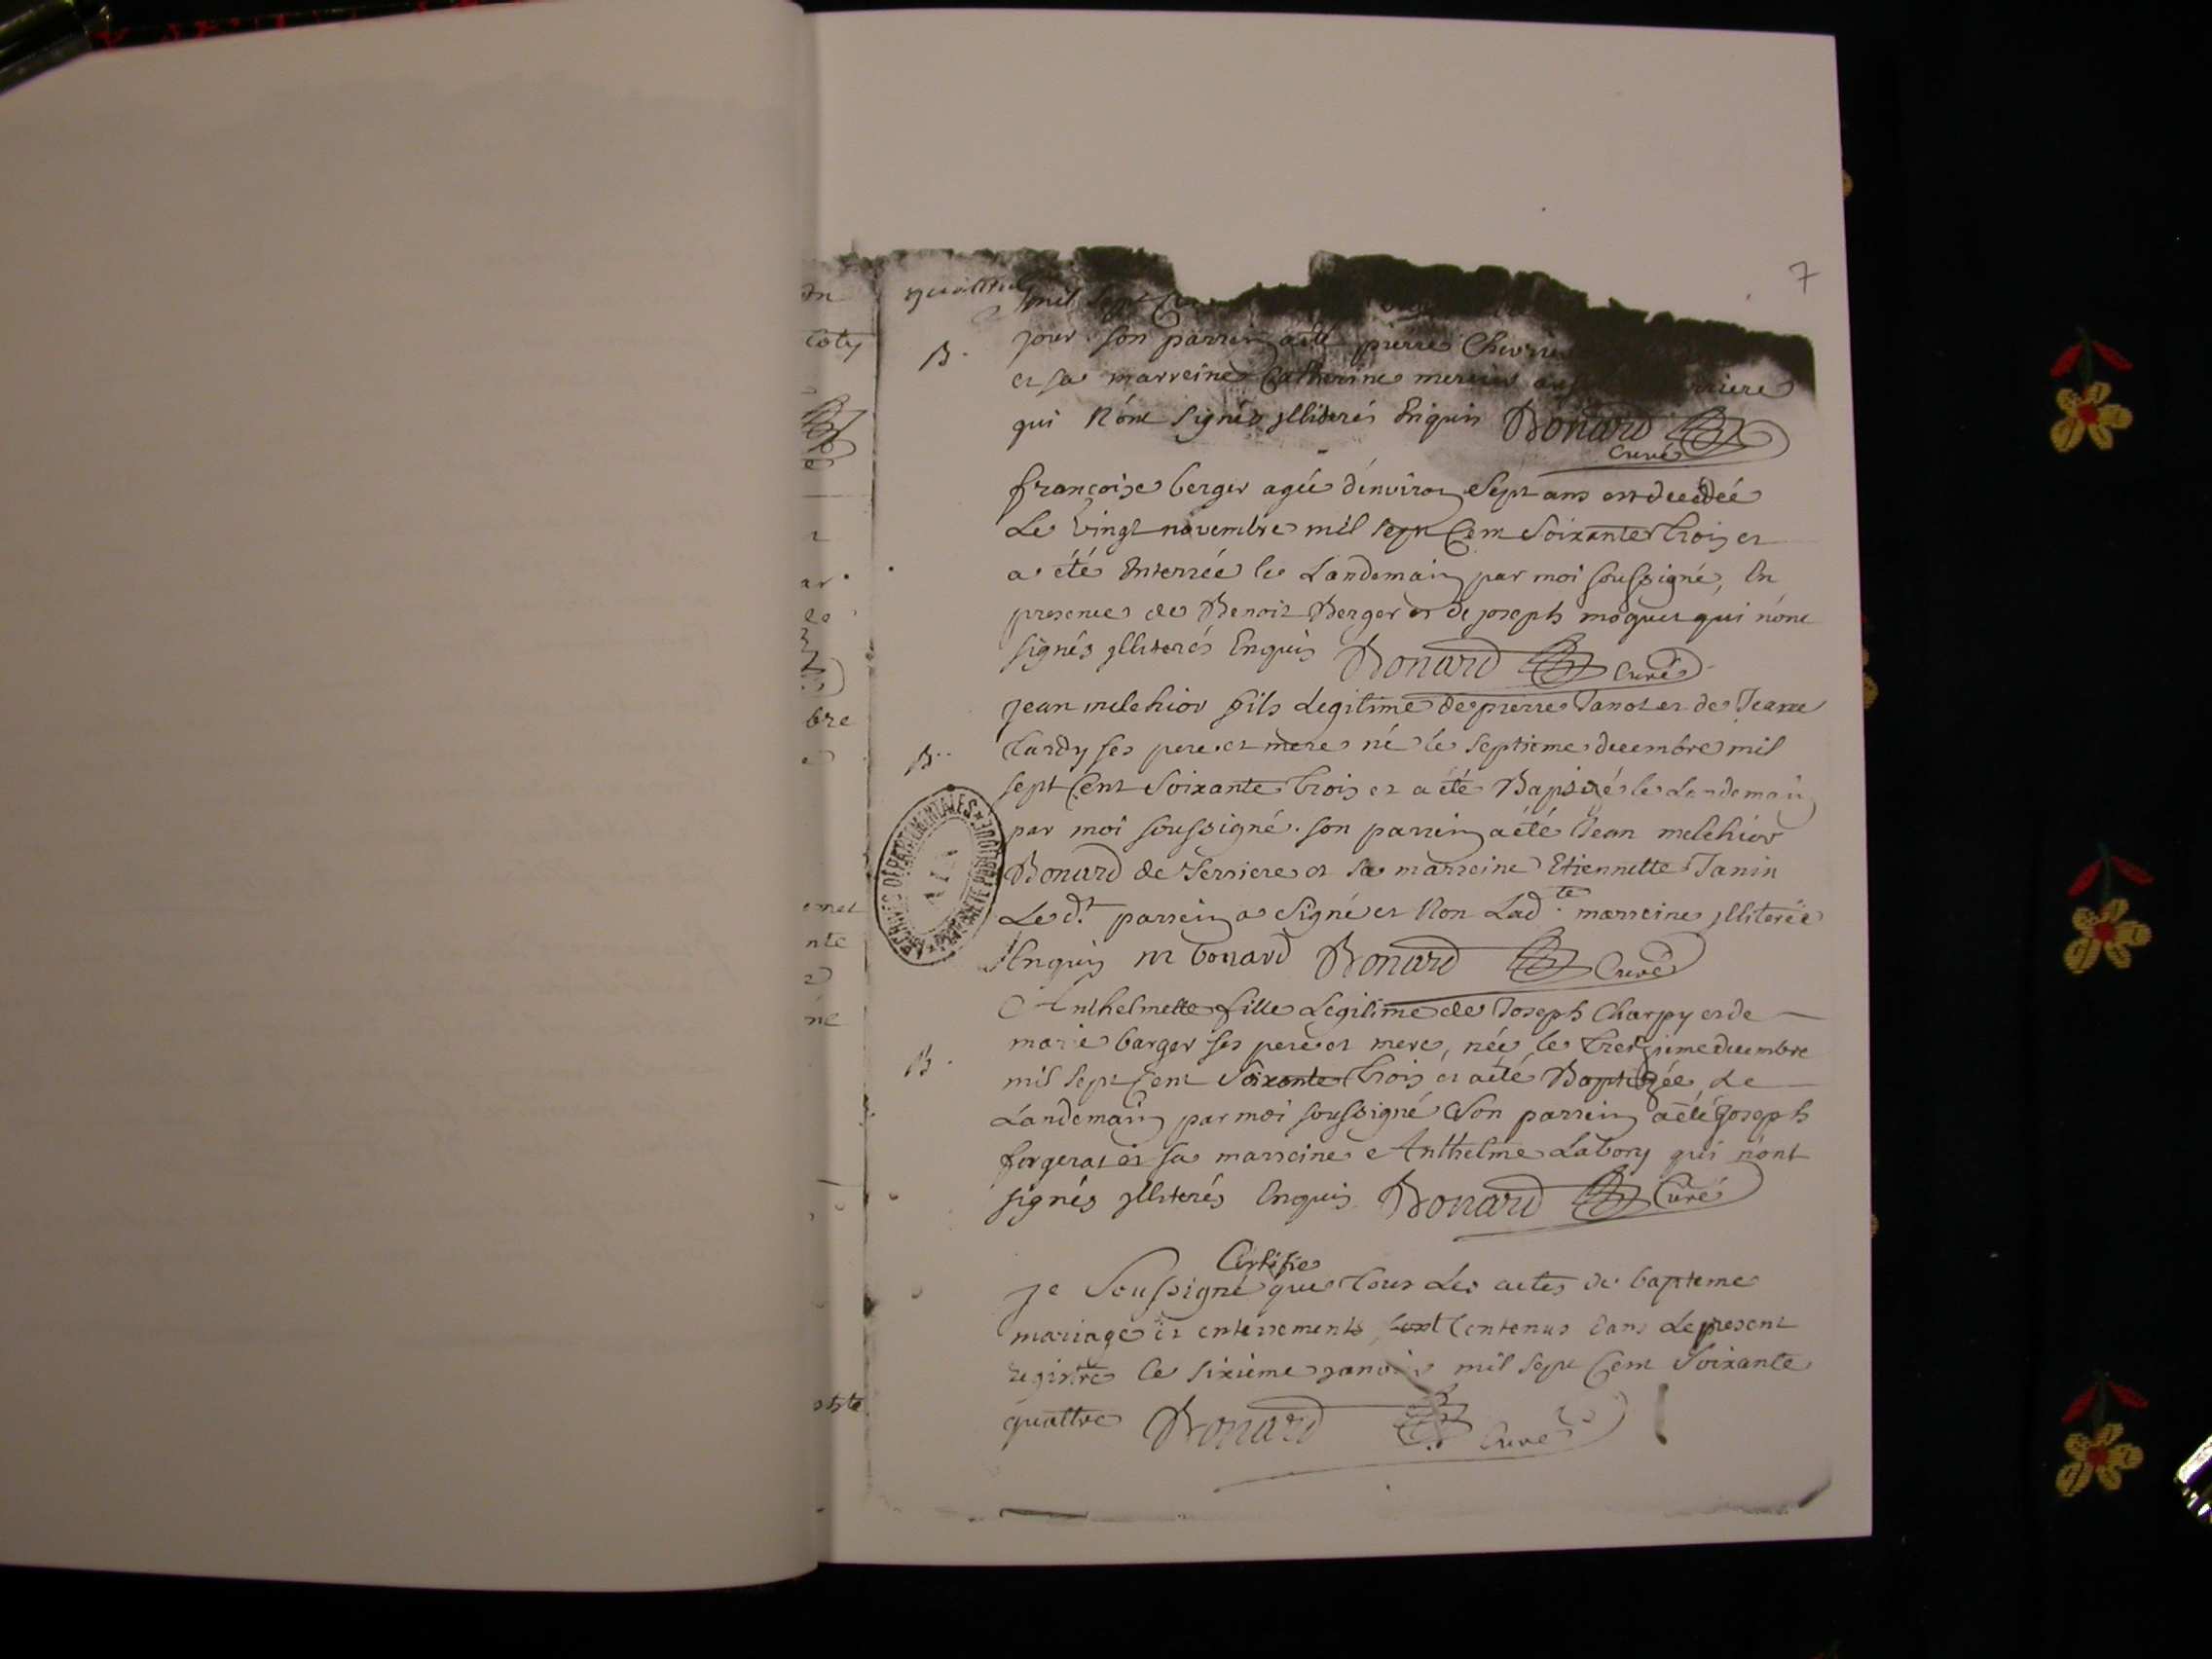 7
mil sept
jour son parrein a été pierre
B.
et sa marreine Catherine
qui nónt signés jlliterés Enquis Bonard
Curé
françoise berger agée d'environ sept ans est decedée
Le vingt novembre mil sept Cent soixante trois et
a été Enterrée le Landemain par moi soussigné, En
presence de Benoit Berger et de joseph moquet qui n'ont
signés jlliterés Enquis Bonard Curé
jean melchior fils Legitime de pierre Janot et de Jeanne
tardy ses pere et mere né le septieme decembre mil
B.
sept Cent soixante trois et a été Baptizé le Landemain
par moi soussigné. son parrein a été Jean melchior
Bonard de Serriere et sa marreine Etiennette Janin
Le d.t parrein a signé et Non Lad.te marreine jlliterée
Enquis m bonard Bonard Curé
Anthelmette fille Legitime de Joseph Charpy et de
marie barger ses pere et mere, née le treizieme decembre
B.
mil sept Cent soixante trois et a été Baptizée Le
Landemain par moi soussigné Son parrein a été joseph
forgerat et sa marreine Anthelme Labory qui n'ont
signés jlliterés Enquis Bonard Curé
Certifie
je soussigné que tous Les actes de bapteme
mariage et enterrements sont Contenus dans Le present
registre le sixieme janvier mil sept Cent soixante
quattre Bonard Curé
ARCHIVES DEPARTEMENTALES
AIN
PROPRIETE PUBLIQUE
coty
bre
nte